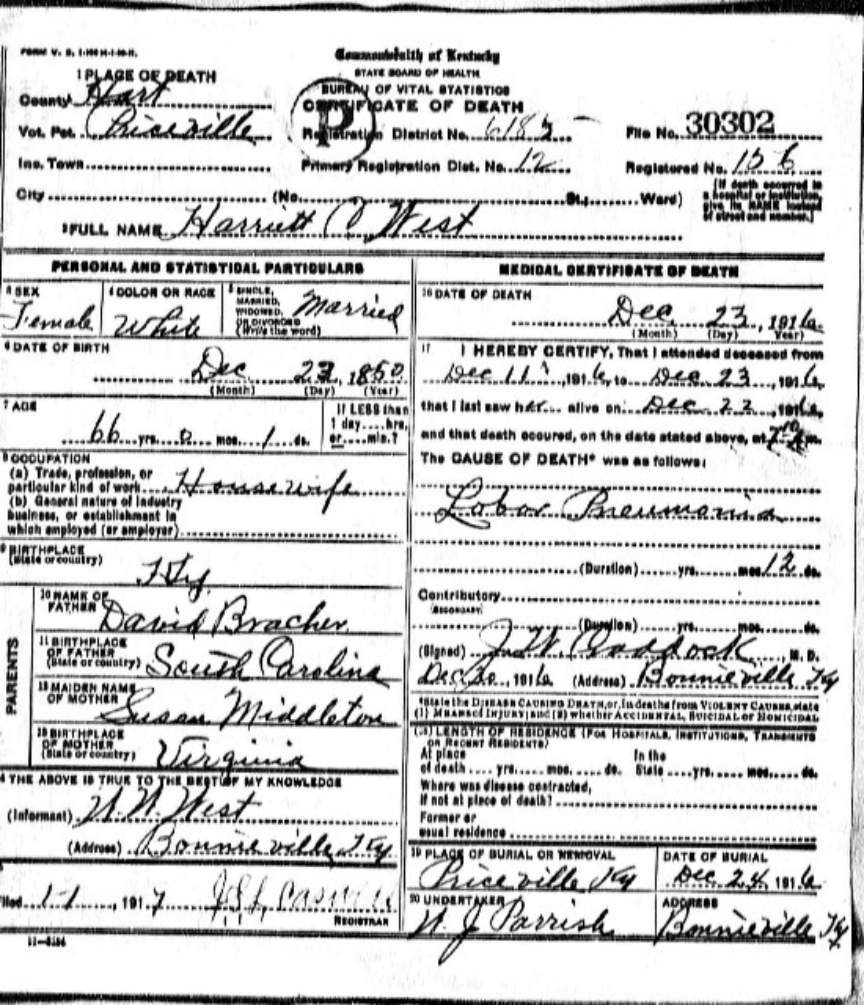 FORM V. S. 1-100 M-1-20-11.
Commonwealth of Kentucky
STATE BOARD OF HEALTH
BUREAU OF VITAL STATISTICS
CERTIFICATE OF DEATH
P
1 PLACE OF DEATH
County Hart
Vot. Pct. Priceville
Registration District No. 6185
File No. 30302
Inc. Town
Primary Registration Dist. No. 12
Registered No. 156
City (No. St.; Ward)
(If death occurred in a hospital or institution, give its NAME instead of street and number.)
2 FULL NAME Harriett C West
PERSONAL AND STATISTICAL PARTICULARS
3 SEX Female
4 COLOR OR RACE White
5 SINGLE, MARRIED, WIDOWED, OR DIVORCED (Write the word) Married
6 DATE OF BIRTH
Dec 23, 1850
(Month) (Day) (Year)
7 AGE
66 yrs. 0 mos. 1 ds.
If LESS than 1 day....hrs. or....min.?
8 OCCUPATION
(a) Trade, profession, or particular kind of work Housewife
(b) General nature of industry business, or establishment in which employed (or employer)
9 BIRTHPLACE (State or country) Ky
PARENTS
10 NAME OF FATHER David Bracher
11 BIRTHPLACE OF FATHER (State or country) South Carolina
12 MAIDEN NAME OF MOTHER Susan Middleton
13 BIRTHPLACE OF MOTHER (State or country) Virginia
14 THE ABOVE IS TRUE TO THE BEST OF MY KNOWLEDGE
(Informant) W West
(Address) Bonnieville Ky
Filed 1-1, 1917
REGISTRAR
11-3184
MEDICAL CERTIFICATE OF DEATH
16 DATE OF DEATH
Dec 23, 1916
(Month) (Day) Year)
17 I HEREBY CERTIFY, That I attended deceased from
Dec 11, 1916, to Dec 23, 1916,
that I last saw her alive on Dec 22, 1916,
and that death occured, on the date stated above, at m.
The CAUSE OF DEATH* was as follows:
Lobar Pneumonia
(Duration) yrs. mos. 12 ds.
Contributory
(SECONDARY)
(Duration) yrs. mos. ds.
(Signed) J W Craddock, M. D.
Dec 30, 1916 (Address) Bonnieville Ky
*State the DISEASE CAUSING DEATH, or, in deaths from VIOLENT CAUSES, state
(1) MEANS OF INJURY; and (2) whether ACCIDENTAL, SUICIDAL or HOMICIDAL
LENGTH OF RESIDENCE (FOR HOSPITALS, INSTITUTIONS, TRANSIENTS
OR RECENT RESIDENTS)
At place of death .... yrs. .... mos. .... ds. In the State .... yrs. .... mos. .... ds.
Where was disease contracted, if not at place of death?
Former or usual residence
19 PLACE OF BURIAL OR REMOVAL
Priceville Ky
DATE OF BURIAL
Dec 24 1916
20 UNDERTAKER
W. J. Parrish
ADDRESS
Bonnieville Ky